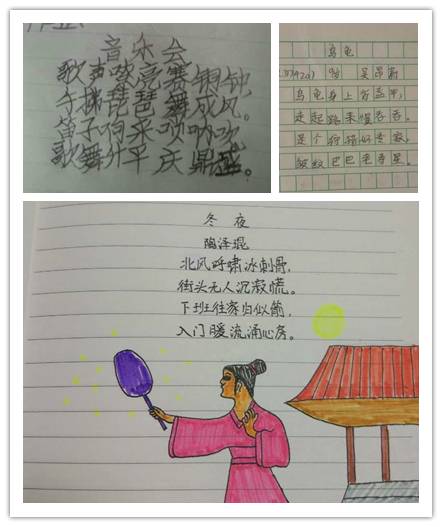 音乐会
歌声嘹亮赛铜钟
手挥琵琶舞成风。
笛子响来唢呐吹
歌舞升平庆鼎盛。
乌龟
吴昂
乌龟身上背盔甲,
走起路来慢吞吞。
是个
皱纹巴巴老寿星。
冬夜
陶泽琨
北风呼啸冰刺骨,
街头无人沉寂慌。
下班往家归似箭,
入门暖流涌心房。